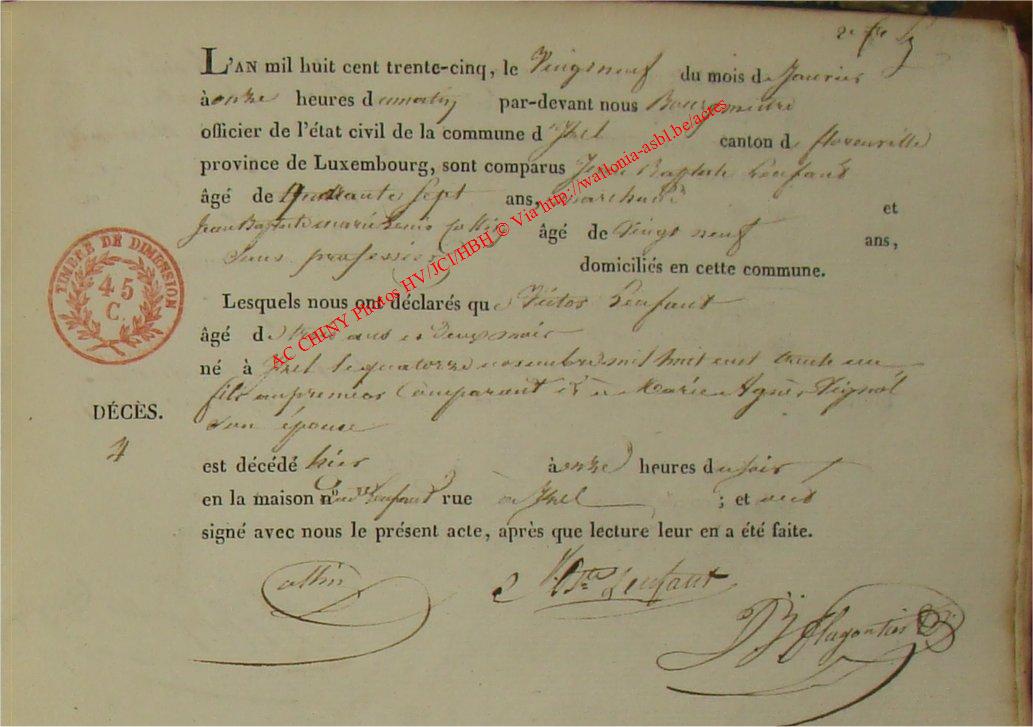 2e fle
L'AN mil huit cent trente-cinq, le Vingt neuf du mois de Janvier
à onze heures du matin par-devant nous Bourgmestre
officier de l'état civil de la commune d'Izel canton de florenville
province de Luxembourg, sont comparus Jean Baptiste Lenfant
âgé de quarante Sept ans, marchand et
Jean Baptiste marie Louis Collin âgé de Vingt neuf ans,
Sans profession domiciliés en cette commune.
Lesquels nous ont déclarés que Victor Lenfant
âgé de trois ans et deux mois
né à Izel le quatorze novembre mil huit cent trente un
fils au premier Comparant et à Marie Agnès Pignol
Son épouse
est décédé hier à onze heures du soir
en la maison n° dud. Lenfant rue à Izel ; et ont
signé avec nous le présent acte, après que lecture leur en a été faite.
TIMBRE DE DIMENSION
45
C.
DÉCÈS.
4
collin
J Bte Lenfant
AC CHINY Photos HV/JCI/HBH © Via http://wallonia-asbl.be/actes